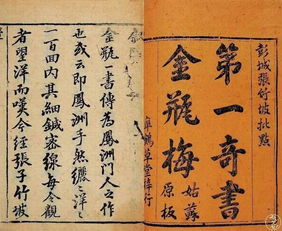 彭城張竹坡批點
第一奇書
金瓶梅
姑蘇
原板
皐鶴草堂梓行
金瓶一書傳為鳳洲門人之作
也或云即鳳洲手然纚〻洋〻
一百回內其細鍼密線每令觀
者望洋而嘆今經張子竹坡